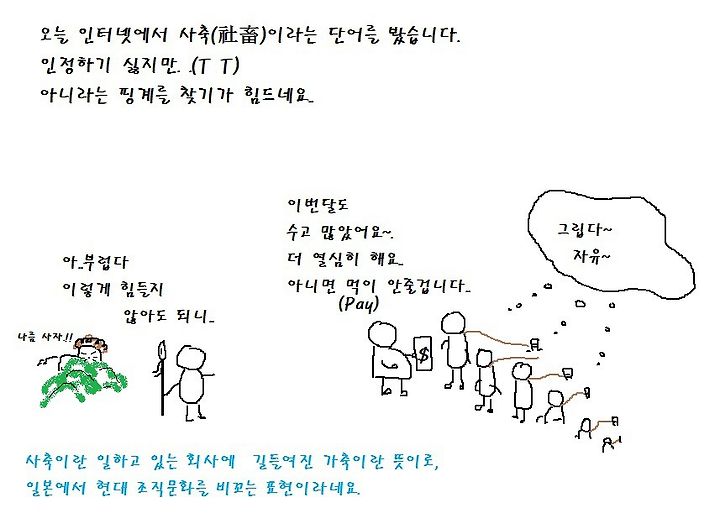 오늘 인터넷에서 사축(社畜)이라는 단어를 봤습니다.
인정하기 싫지만. .(T T)
아니라는 핑계를 찾기가 힘드네요..
이번달도
수고 많았어요~.
더 열심히 해요..
아니면 먹이 안줄겁니다..
(Pay)
그립다~
자유~
아..부럽다
이렇게 힘들지
않아도 되니..
나름 사자!!
$
사축이란 일하고 있는 회사에 길들여진 가축이란 뜻이로,
일본에서 현대 조직문화를 비꼬는 표현이라네요.